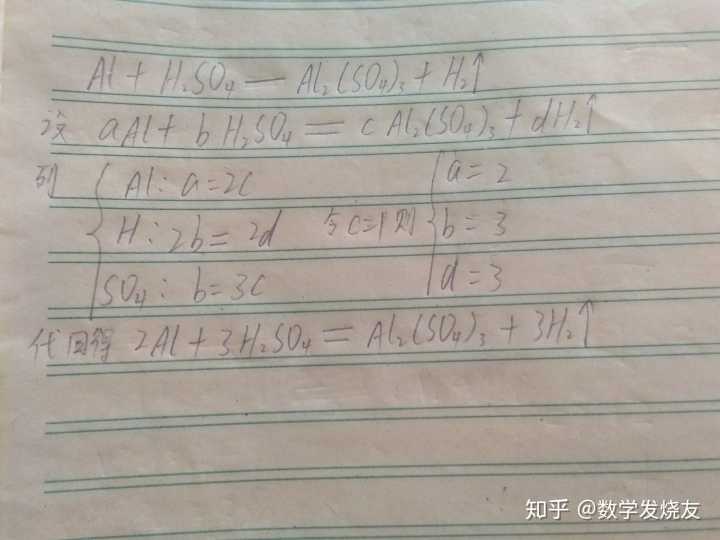 Al + H₂SO₄ — Al₂(SO₄)₃ + H₂↑
设 aAl + bH₂SO₄ = cAl₂(SO₄)₃ + dH₂↑
列 { Al: a=2c { a=2
H: 2b=2d 令c=1则 b=3
SO₄: b=3c d=3
代回得 2Al + 3H₂SO₄ = Al₂(SO₄)₃ + 3H₂↑
知乎 @数学发烧友